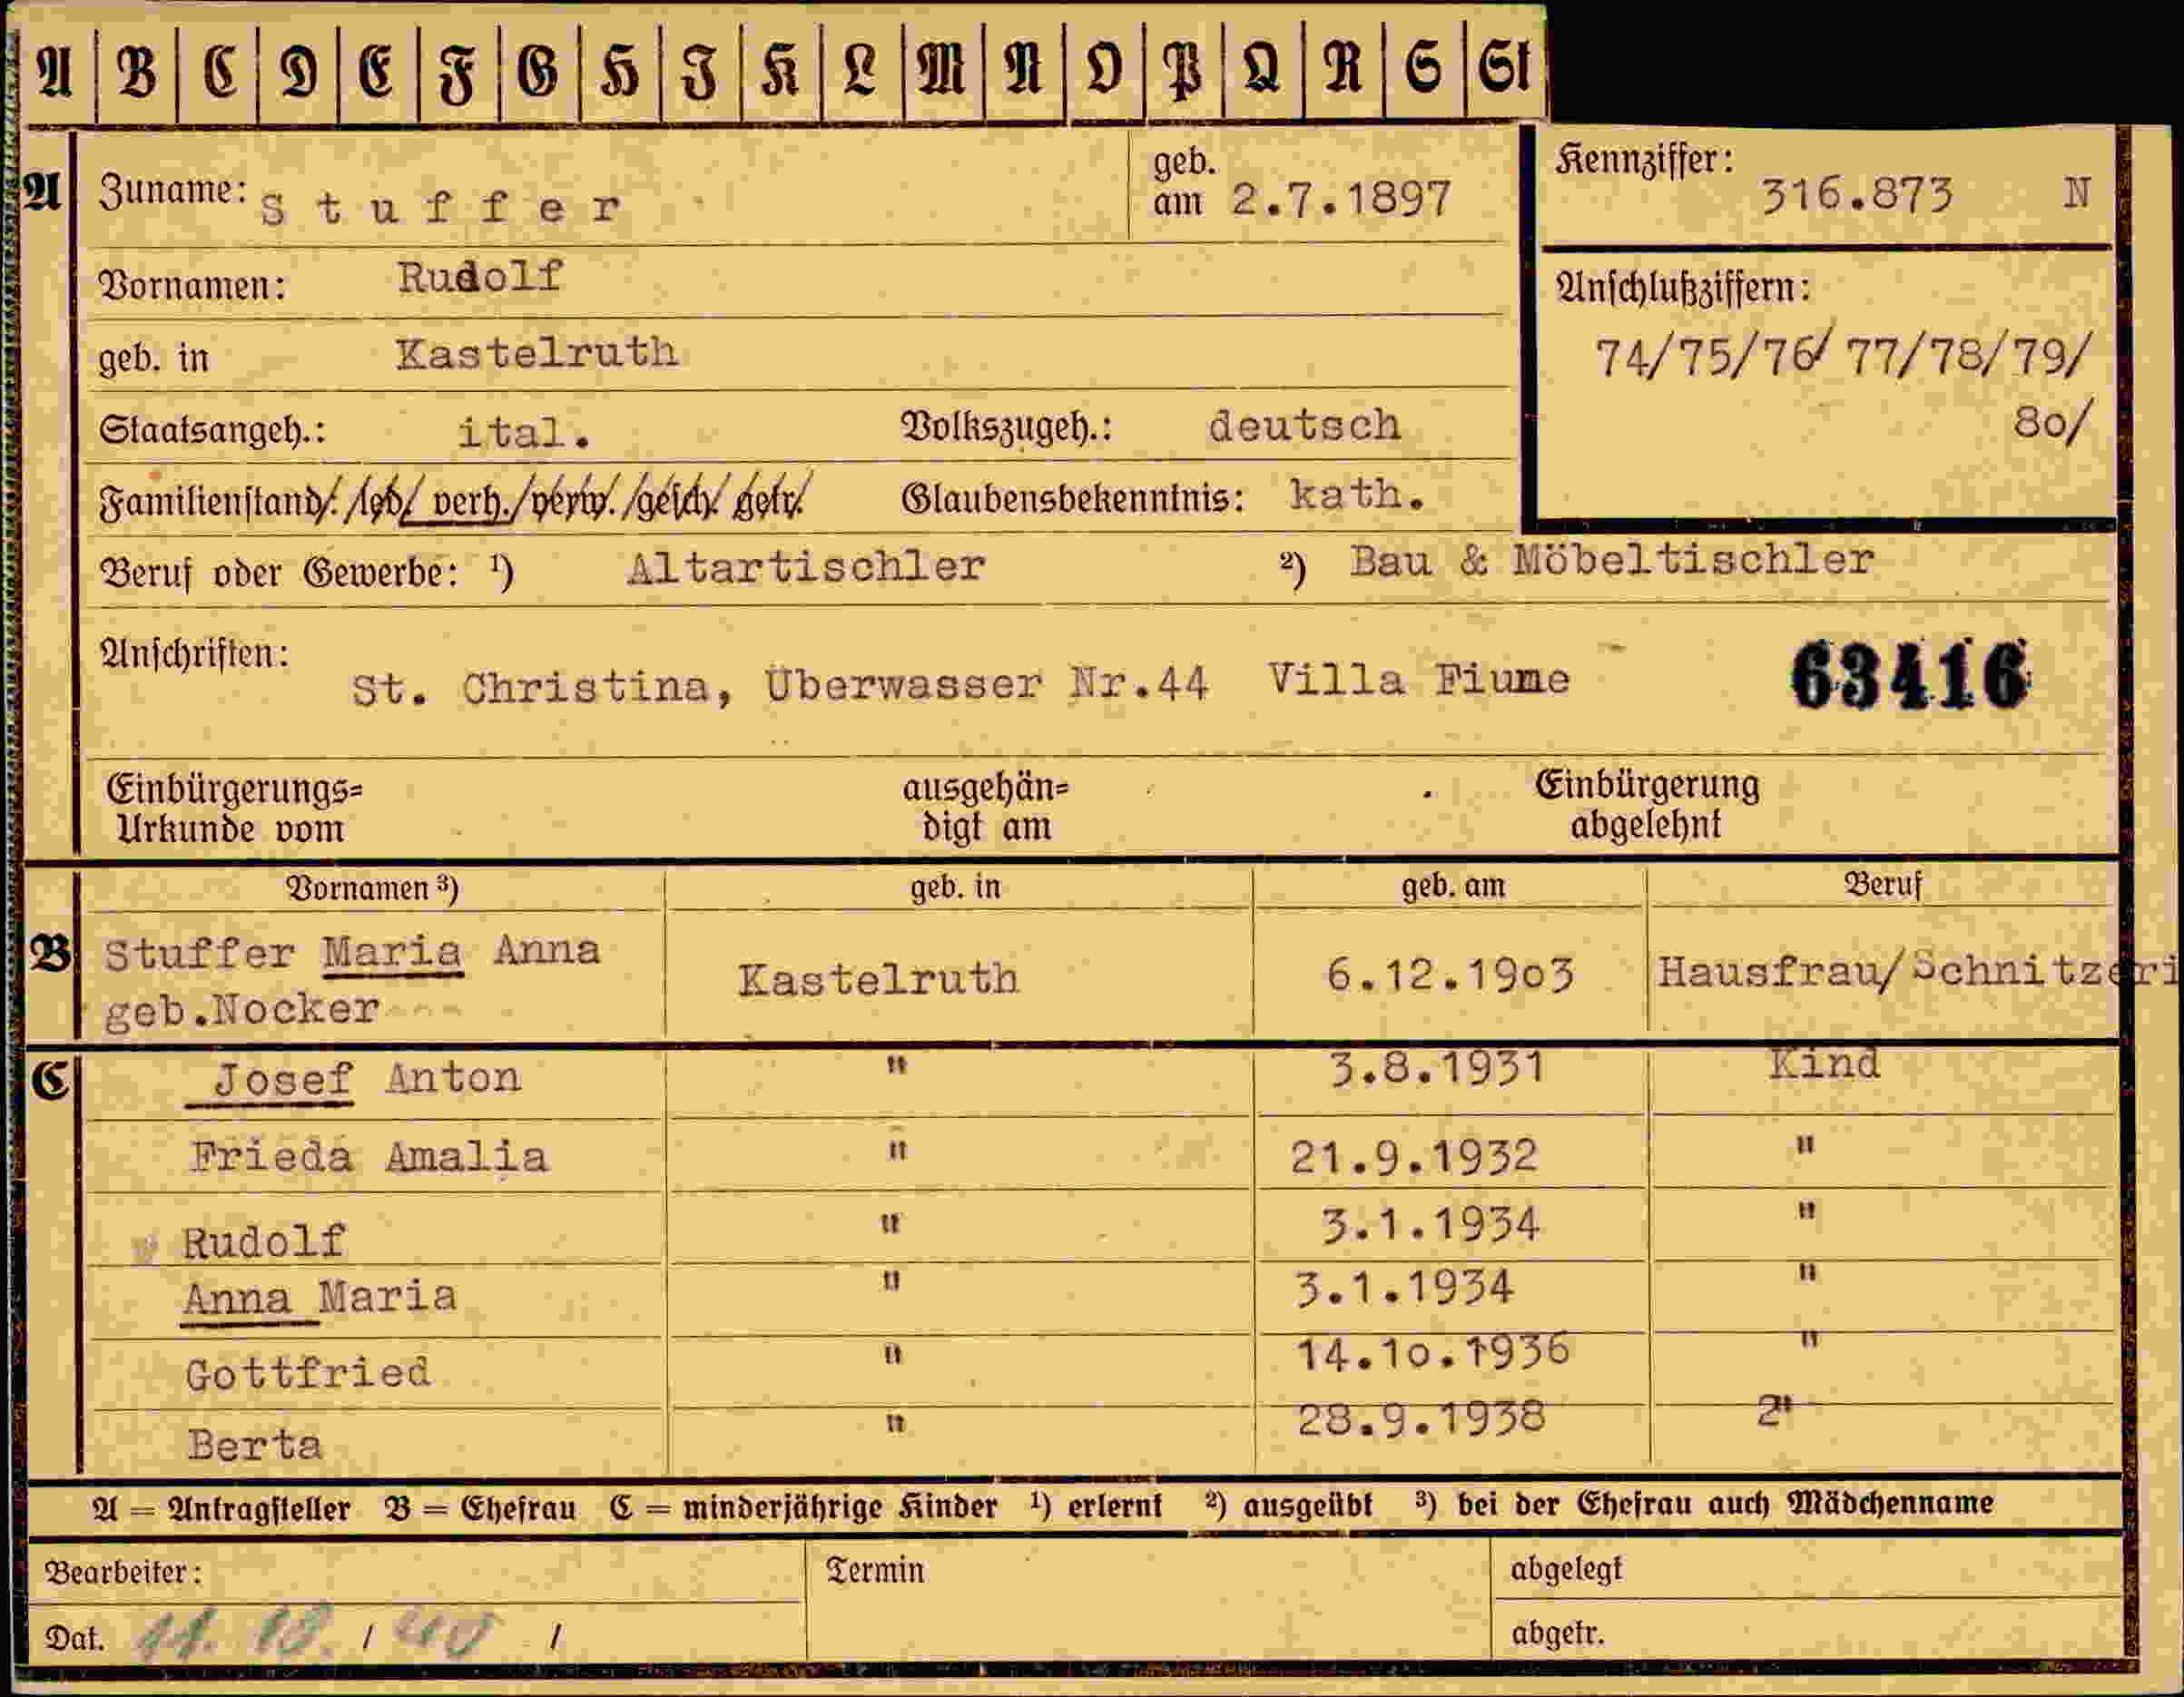 A B C D E F G H I K L M N O P Q R S St
A Zuname: S t u f f e r geb. am 2.7.1897 Kennziffer: 316.873 N
Vornamen: Rudolf
Anschlußziffern:
geb. in Kastelruth 74/75/76/ 77/78/79/
Staatsangeh.: ital. Volkszugeh.: deutsch 80/
Familienstand: led. verh. verw. gesch. getr. Glaubensbekenntnis: kath.
Beruf oder Gewerbe: ¹) Altartischler ²) Bau & Möbeltischler
Anschriften: St. Christina, Überwasser Nr.44 Villa Fiume 63416
Einbürgerungs= ausgehän= Einbürgerung
Urkunde vom digt am abgelehnt
Vornamen ³) geb. in geb. am Beruf
B Stuffer Maria Anna Kastelruth 6.12.1903 Hausfrau/Schnitzeri
geb.Nocker
C Josef Anton " 3.8.1931 Kind
Frieda Amalia " 21.9.1932 "
Rudolf " 3.1.1934 "
Anna Maria " 3.1.1934 "
Gottfried " 14.10.1936 "
Berta " 28.9.1938 "
A = Antragsteller B = Ehefrau C = minderjährige Kinder ¹) erlernt ²) ausgeübt ³) bei der Ehefrau auch Mädchenname
Bearbeiter: Termin abgelegt
Dat. / 40 / abgetr.